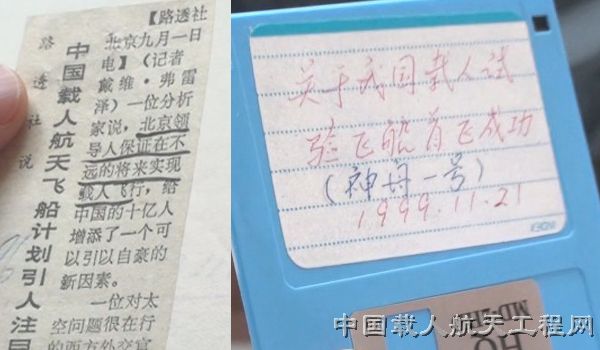 路透社说
中国载人航天飞船计划引人注目
【路透社
北京九月一日
电】(记者
戴维·弗雷
泽)一位分析
家说,北京领
导人保证在不
远的将来实现
载人飞行,给
中国的十亿人
增添了一个可
以引以自豪的
新因素。
一位对太
空问题很在行
的西方外交官
关于我国载人试
验飞船首飞成功
(神舟一号)
1999.11.21
INDEX
HQ
中国载人航天工程网